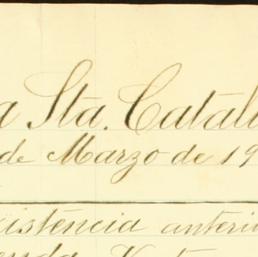 a Sta. Catali
de Marzo de 19
istencia anteri